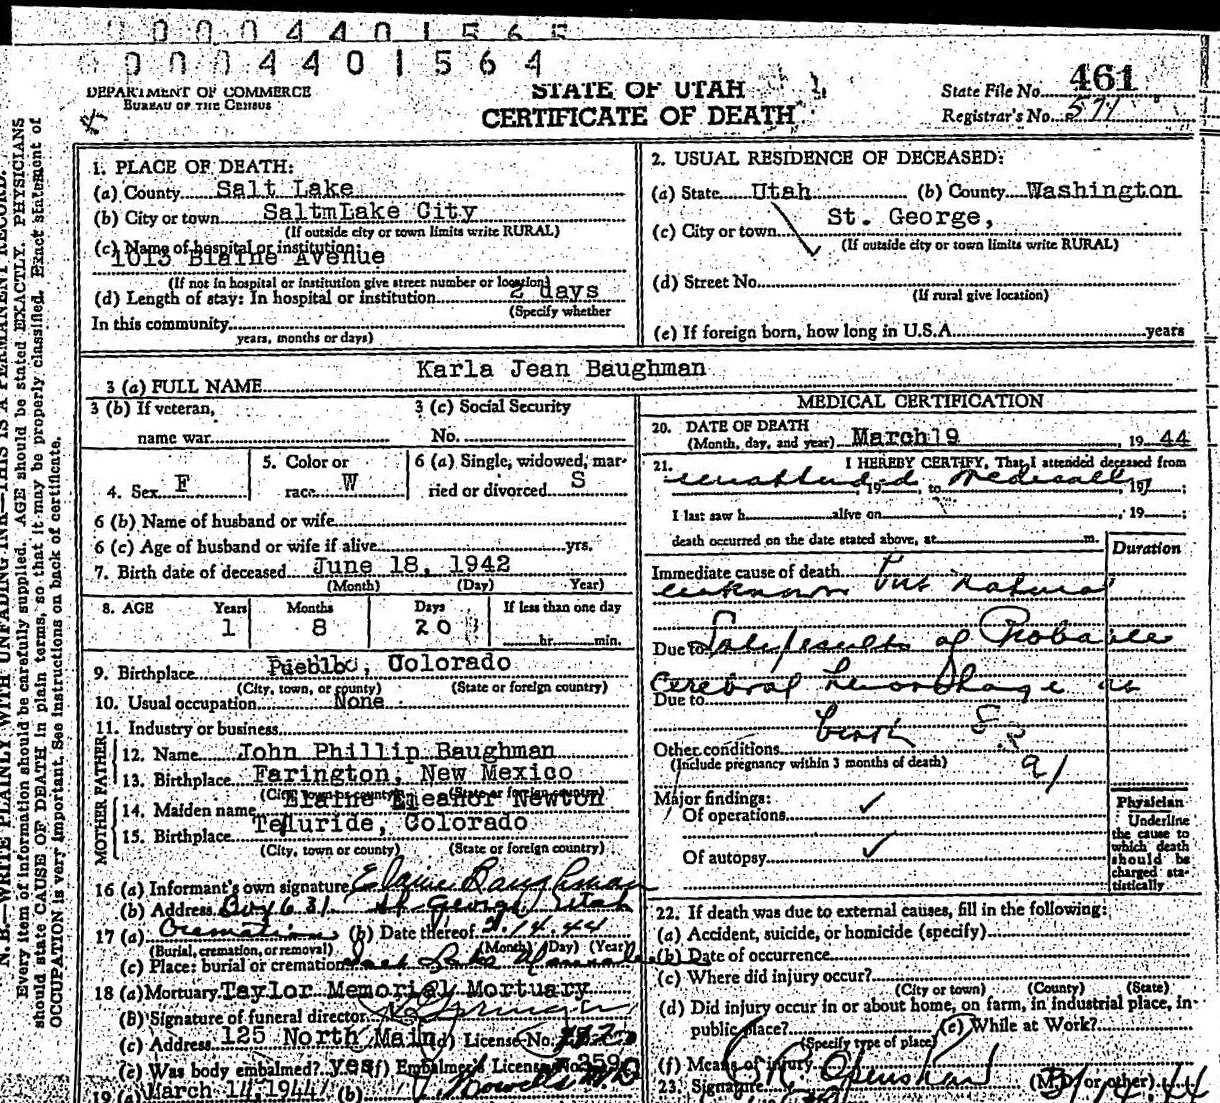 0 0 0 4 4 0 1 5 6 5
0 0 0 4 4 0 1 5 6 4
DEPARTMENT OF COMMERCE
BUREAU OF THE CENSUS
STATE OF UTAH
CERTIFICATE OF DEATH
State File No. 461
Registrar's No. 571
N. B.—WRITE PLAINLY WITH UNFADING INK—THIS IS A PERMANENT RECORD.
Every item of information should be carefully supplied. AGE should be stated EXACTLY. PHYSICIANS
should state CAUSE OF DEATH in plain terms, so that it may be properly classified. Exact statement of
OCCUPATION is very important. See instructions on back of certificate.
1. PLACE OF DEATH:
(a) County Salt Lake
(b) City or town SaltmLake City
(If outside city or town limits write RURAL)
(c) Name of hospital or institution:
1013 Blaine Avenue
(If not in hospital or institution give street number or location)
(d) Length of stay: In hospital or institution 2 days
(Specify whether
In this community
years, months or days)
2. USUAL RESIDENCE OF DECEASED:
(a) State Utah (b) County Washington
(c) City or town St. George,
(If outside city or town limits write RURAL)
(d) Street No.
(If rural give location)
(e) If foreign born, how long in U.S.A. years
3 (a) FULL NAME Karla Jean Baughman
3 (b) If veteran,
name war
3 (c) Social Security
No.
4. Sex F
5. Color or
race W
6 (a) Single, widowed, mar-
ried or divorced S
6 (b) Name of husband or wife
6 (c) Age of husband or wife if alive yrs.
7. Birth date of deceased June 18, 1942
(Month) (Day) Year)
8. AGE Years Months Days If less than one day
1 8 20 hr. min.
9. Birthplace Pueblo, Colorado
(City, town, or county) (State or foreign country)
10. Usual occupation None
11. Industry or business
FATHER
12. Name John Phillip Baughman
13. Birthplace Farington, New Mexico
(City, town or county) (State or foreign country)
MOTHER
14. Maiden name Elaine Eleanor Newton
15. Birthplace Telluride, Colorado
(City, town or county) (State or foreign country)
16 (a) Informant's own signature Elaine Baughman
(b) Address Box 631 St George, Utah
17 (a) Cremation (b) Date thereof 3.14.44
(Burial, cremation, or removal) (Month) (Day) (Year)
(c) Place: burial or cremation Salt Lake
18 (a) Mortuary Taylor Memorial Mortuary
(B) Signature of funeral director
(c) Address 125 North Main (d) License No.
(e) Was body embalmed? yes (f) Embalmer's License
19 (a) March 14, 1944 (b)
MEDICAL CERTIFICATION
20. DATE OF DEATH
(Month, day, and year) March 9, 19 44
21. I HEREBY CERTIFY, That I attended deceased from
unattended, 19 to medically, 19 ;
I last saw h alive on , 19 ;
death occurred on the date stated above, at m.
Duration
Immediate cause of death but natural
unknown
Due to Late results of Probable
Cerebral hemorrhage at
Due to
birth
Other conditions
(Include pregnancy within 3 months of death)
Major findings:
Of operations ✓
Of autopsy ✓
Physician
Underline
the cause to
which death
should be
charged sta-
tistically
22. If death was due to external causes, fill in the following:
(a) Accident, suicide, or homicide (specify)
(b) Date of occurrence
(c) Where did injury occur?
(City or town) (County) (State)
(d) Did injury occur in or about home, on farm, in industrial place, in
public place? (e) While at Work?
(Specify type of place)
(f) Means of injury
23. Signature Openshaw (M.D. or other) 3/14.44